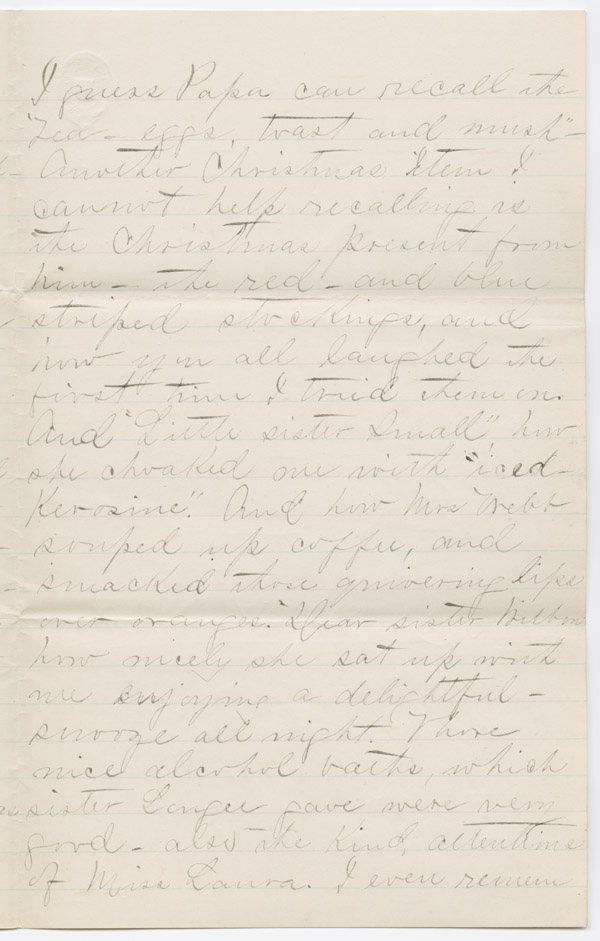 I guess Papa can recall the
"Tea - eggs, toast and mush" -
Another Christmas item I
cannot help recalling is
the Christmas present from
him - the red - and blue
striped stockings, and
how you all laughed the
first time I tried them on.
And "Little sister Small", how
she choaked me with "iced -
Kerosine". And how Mrs Webb
souped up coffee, and
smacked those quivering lips
over oranges. "Dear sister
how nicely she sat up with
me enjoying a delightful -
snooze all night. Those
nice alcohol baths, which
sister gave were very
good - also the kind, attentions
of Miss Laura. I even remem